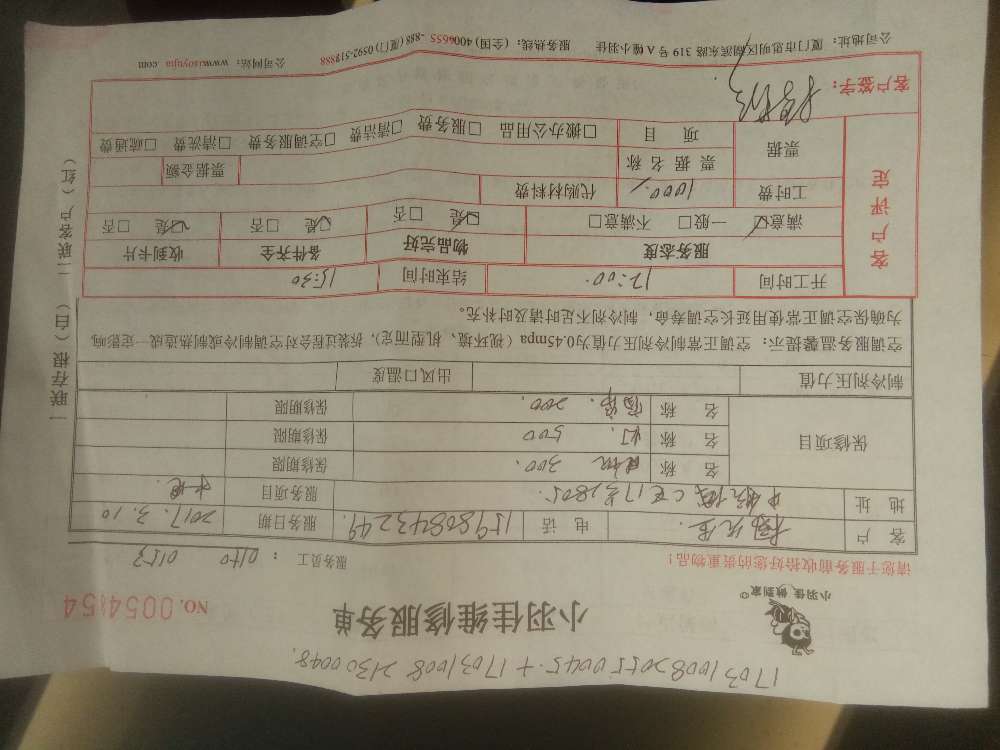 17031008205500045.+17031008213000048.
小羽佳 做到家
小羽佳维修服务单
NO. 0054154
请您于服务前收拾好您的贵重物品!
服务员工: 0140 0153
客 户 先生. 电 话 15980843249. 服务日期 2017.3.10
地 址 C座17号1805. 服务项目
保修项目
名 称 300. 保修期限
名 称 灯. 500 保修期限
名 称 200. 保修期限
制冷剂压力值 出风口温度
空调服务温馨提示:空调正常制冷剂压力值为0.45mpa(视环境、机型而定),拆装过程会对空调制冷或制热造成一定影响,
为确保空调正常使用延长空调寿命,制冷剂不足时请及时补充。
客户评定
开工时间 12:00. 结束时间 15:30
服务态度 物品完好 备件齐全 收到卡片
满意☑ 一般□ 不满意□ ☑是 □否 ☑是 □否 ☑是 □否
工时费 1000./ 代购材料费
票据 票据名称 票据金额
项 目 □搬办公用品 □服务费 □清洁费 □空调服务费 □清洗费 □疏通费
客户签字:
公司地址:厦门市思明区湖滨东路319号A幢小羽佳 服务热线:(全国)4006655-888(厦门)0592-518888 公司网站:www.xsoyujia.com
一联存根(白) 二联客户(红)